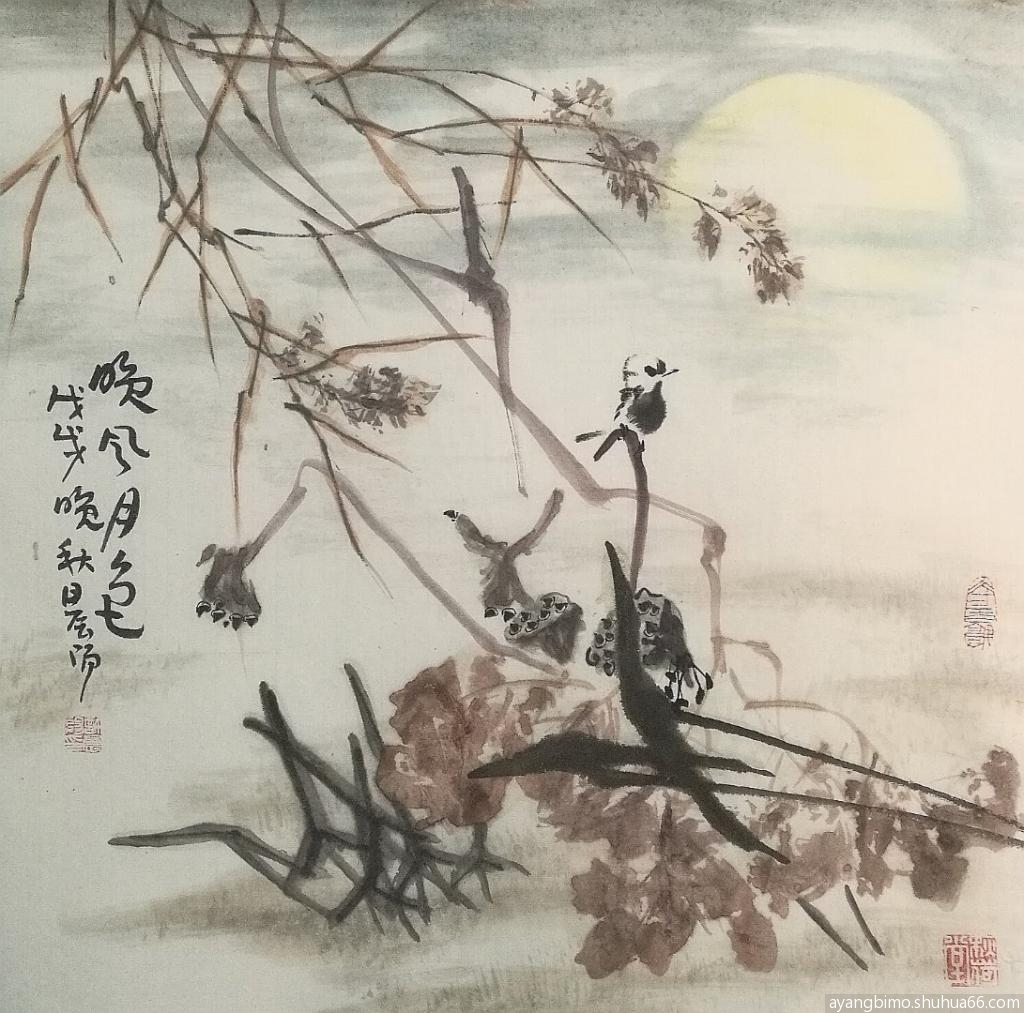 晚风月色
戊戌晚秋晨阳
ayangbimo.shuhua66.com